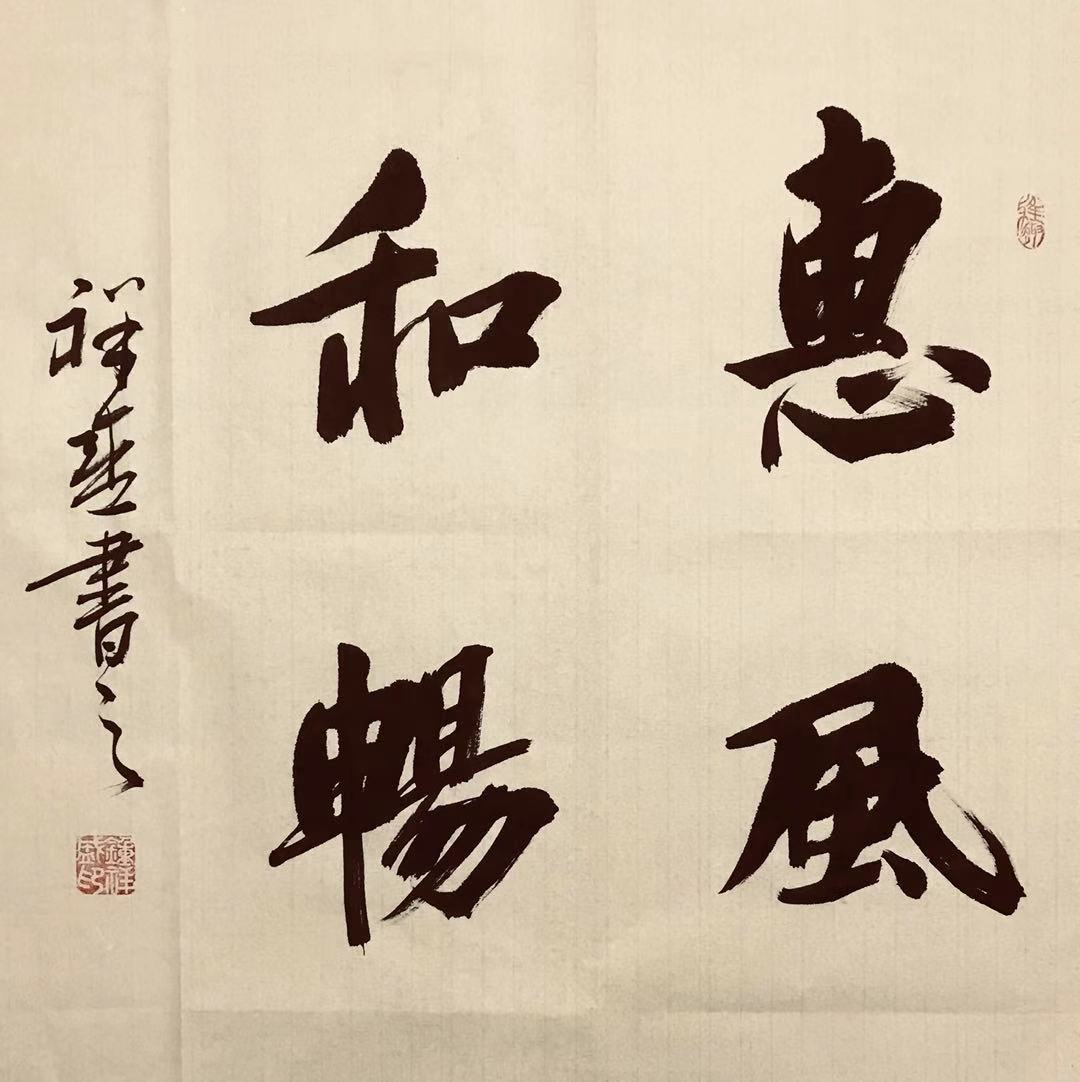 惠風
和暢
祥盛書之